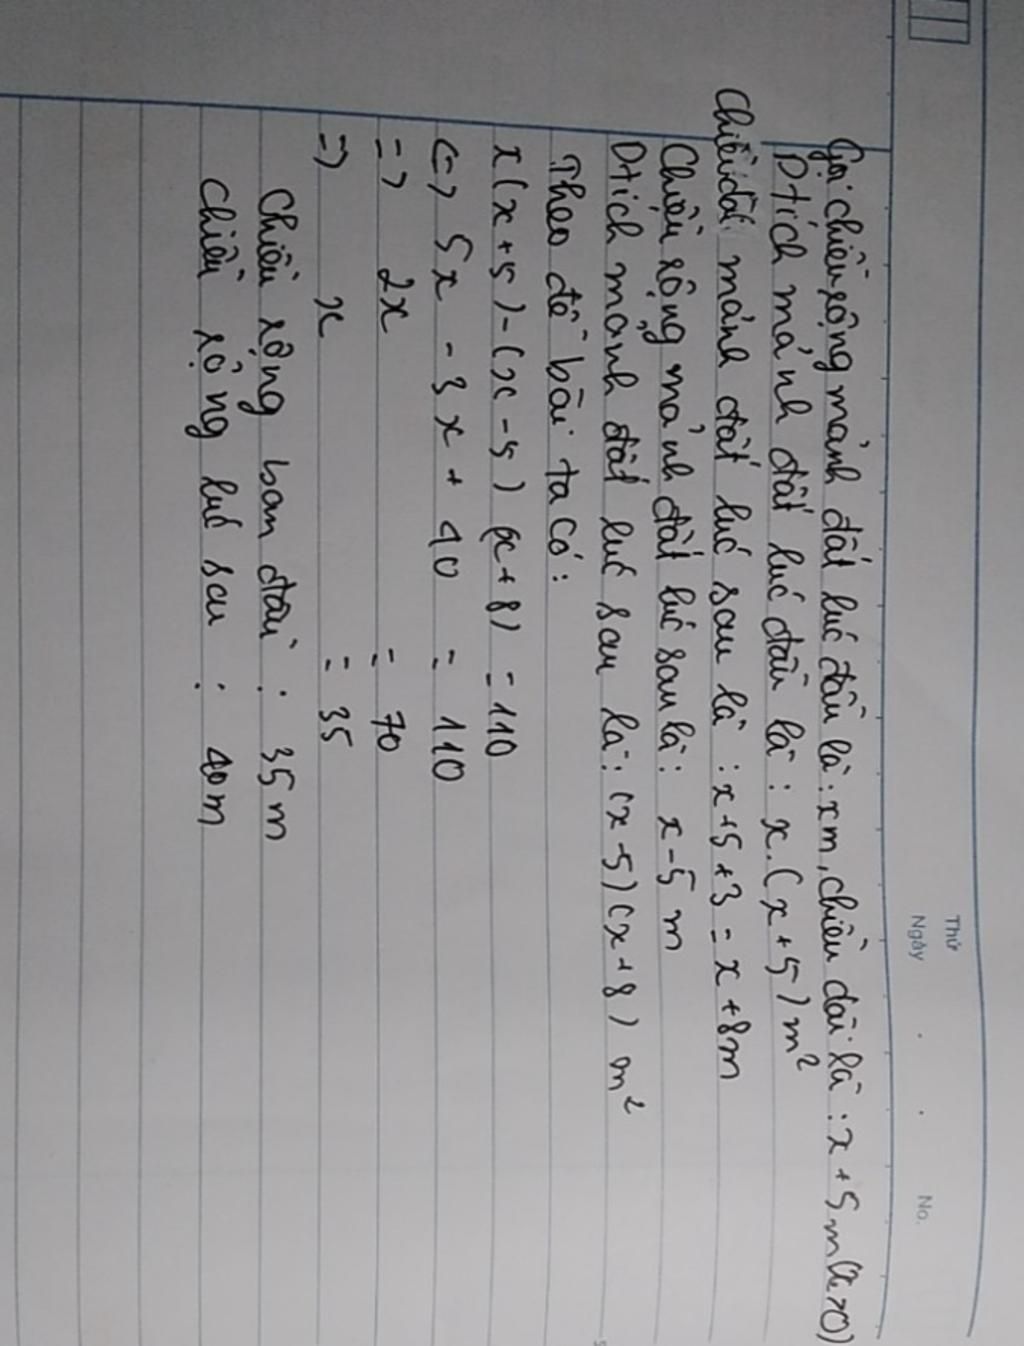 Thứ
Ngày . . No.
Gọi chiều rộng mảnh đất lúc đầu là : x m, chiều dài là : x + 5 m (x > 0)
Dtích mảnh đất lúc đầu là : x . (x + 5) m²
Chiều dài mảnh đất lúc sau là : x + 5 + 3 = x + 8 m
Chiều rộng mảnh đất lúc sau là : x - 5 m
Dtích mảnh đất lúc sau là : (x - 5) (x + 8) m²
Theo đề bài ta có :
x (x + 5) - (x - 5) (x + 8) = 110
<=> 5x - 3x + 40 = 110
=> 2x = 70
=> x = 35
Chiều rộng ban đầu : 35 m
Chiều rộng lúc sau : 40 m